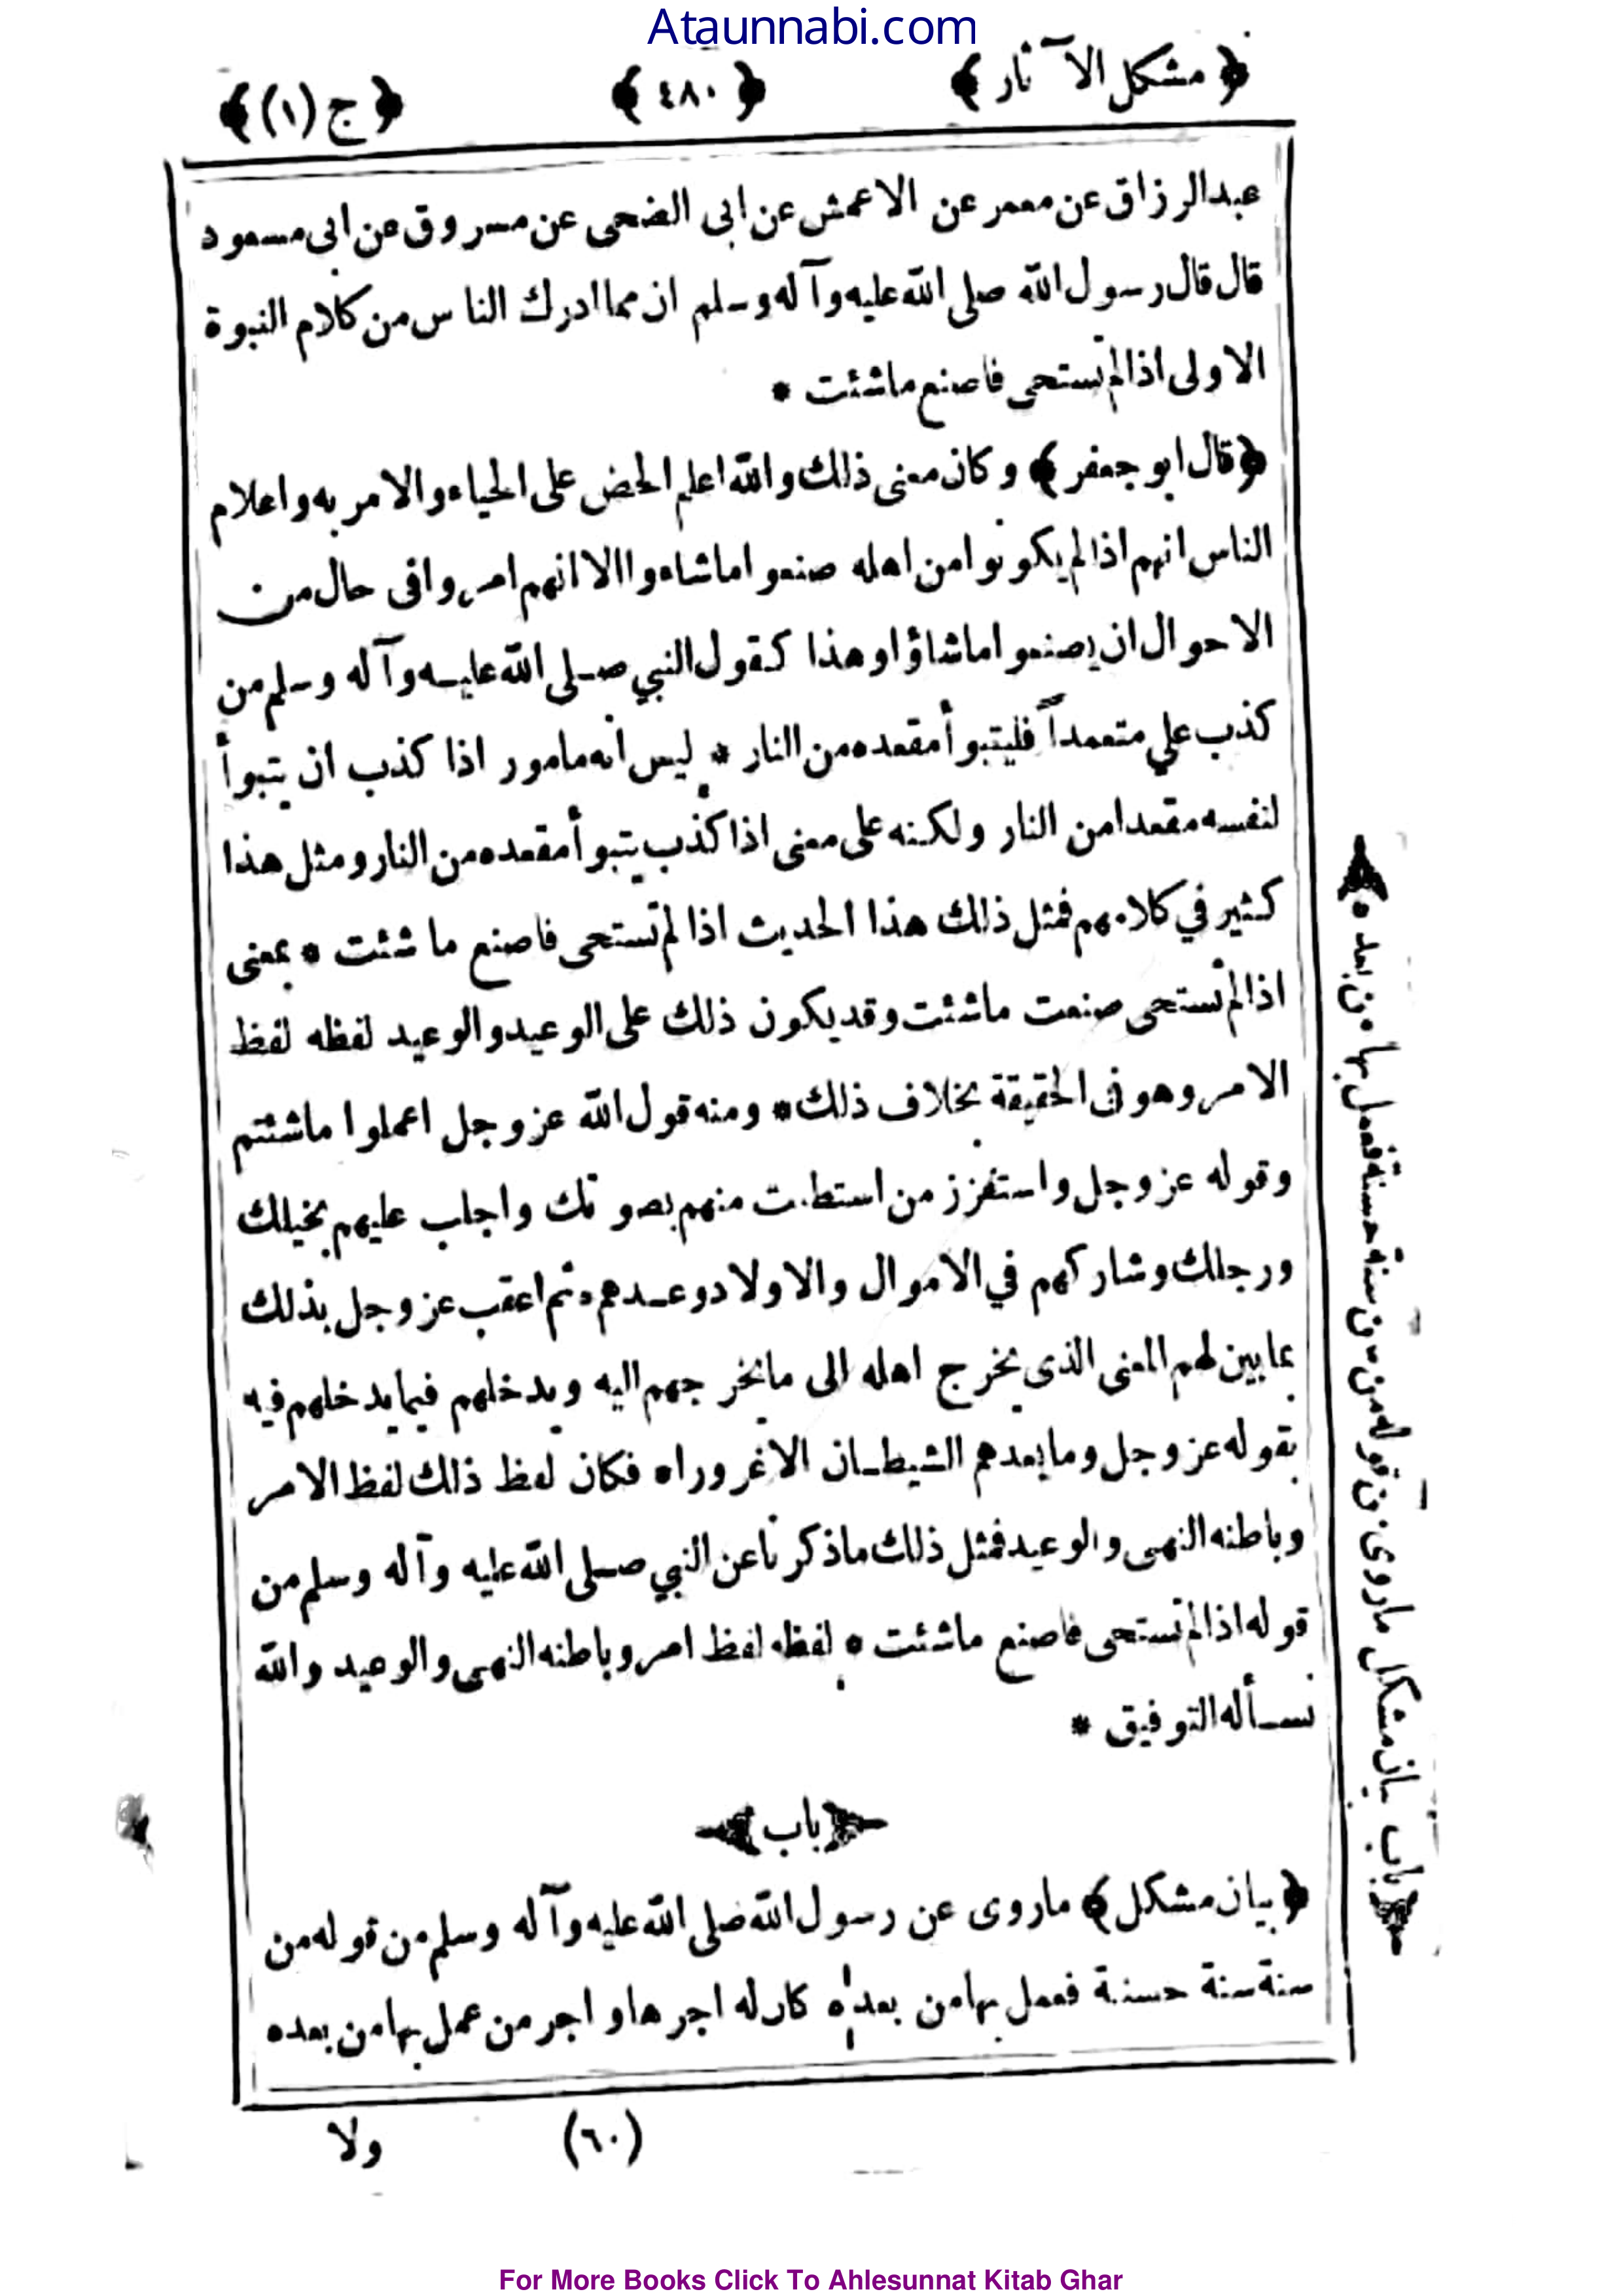 Ataunnabi.com
﴿ مشكل الآثار ﴾ ﴿ ٤٨٠ ﴾ ﴿ ج (١) ﴾
عبد الرزاق عن معمر عن الاعمش عن ابى الضحى عن مسروق عن ابى مسعود
قال قال رسول الله صلى الله عليه وآله وسلم ان مما ادرك الناس من كلام النبوة
الاولى اذا لم تستحى فاصنع ماشئت *
﴿ قال ابو جعفر ﴾ وكان معنى ذلك والله اعلم الحض على الحياء والامر به واعلام
الناس انهم اذا لم يكونوا من اهله صنعوا ماشاءوا الا انهم امروا فى حال من
الاحوال ان يصنعوا ماشاؤا وهذا كقول النبي صلى الله عليه وآله وسلم من
كذب علي متعمداً فليتبوأ مقعده من النار * ليس انه مامور اذا كذب ان يتبوأ
لنفسه مقعدا من النار ولكنه على معنى اذا كذب يتبوأ مقعده من النار ومثل هذا
كثير في كلامهم فمثل ذلك هذا الحديث اذا لم تستحى فاصنع ما شئت * بمعنى
اذا لم تستحى صنعت ماشئت وقد يكون ذلك على الوعيد والوعيد لفظه لفظ
الامر وهو فى الحقيقة بخلاف ذلك * ومنه قول الله عز وجل اعملوا ماشئتم
وقوله عز وجل واستفزز من استطعت منهم بصوتك واجلب عليهم بخيلك
ورجلك وشاركهم في الاموال والاولاد وعدهم * ثم اعقب عز وجل بذلك
بما بين لهم المعنى الذى يخرج اهله الى ما يخرجهم اليه ويدخلهم فيما يدخلهم فيه
بقوله عز وجل وما يعدهم الشيطان الا غرورا * فكان لفظ ذلك لفظ الامر
وباطنه النهى والوعيد فمثل ذلك ماذكرنا عن النبي صلى الله عليه وآله وسلم من
قوله اذا لم تستحى فاصنع ماشئت * لفظه لفظ امر وباطنه النهى والوعيد والله
نسأله التوفيق *
﴿ باب ﴾
﴿ بيان مشكل ﴾ ماروى عن رسول الله صلى الله عليه وآله وسلم من قوله من
سنة سنة حسنة فعمل بها من بعده كان له اجرها واجر من عمل بها من بعده
﴿ باب بيان مشكل ماروى من قوله من سن سنة حسنة فعمل بها من بعده ﴾
(٦٠) ولا
For More Books Click To Ahlesunnat Kitab Ghar